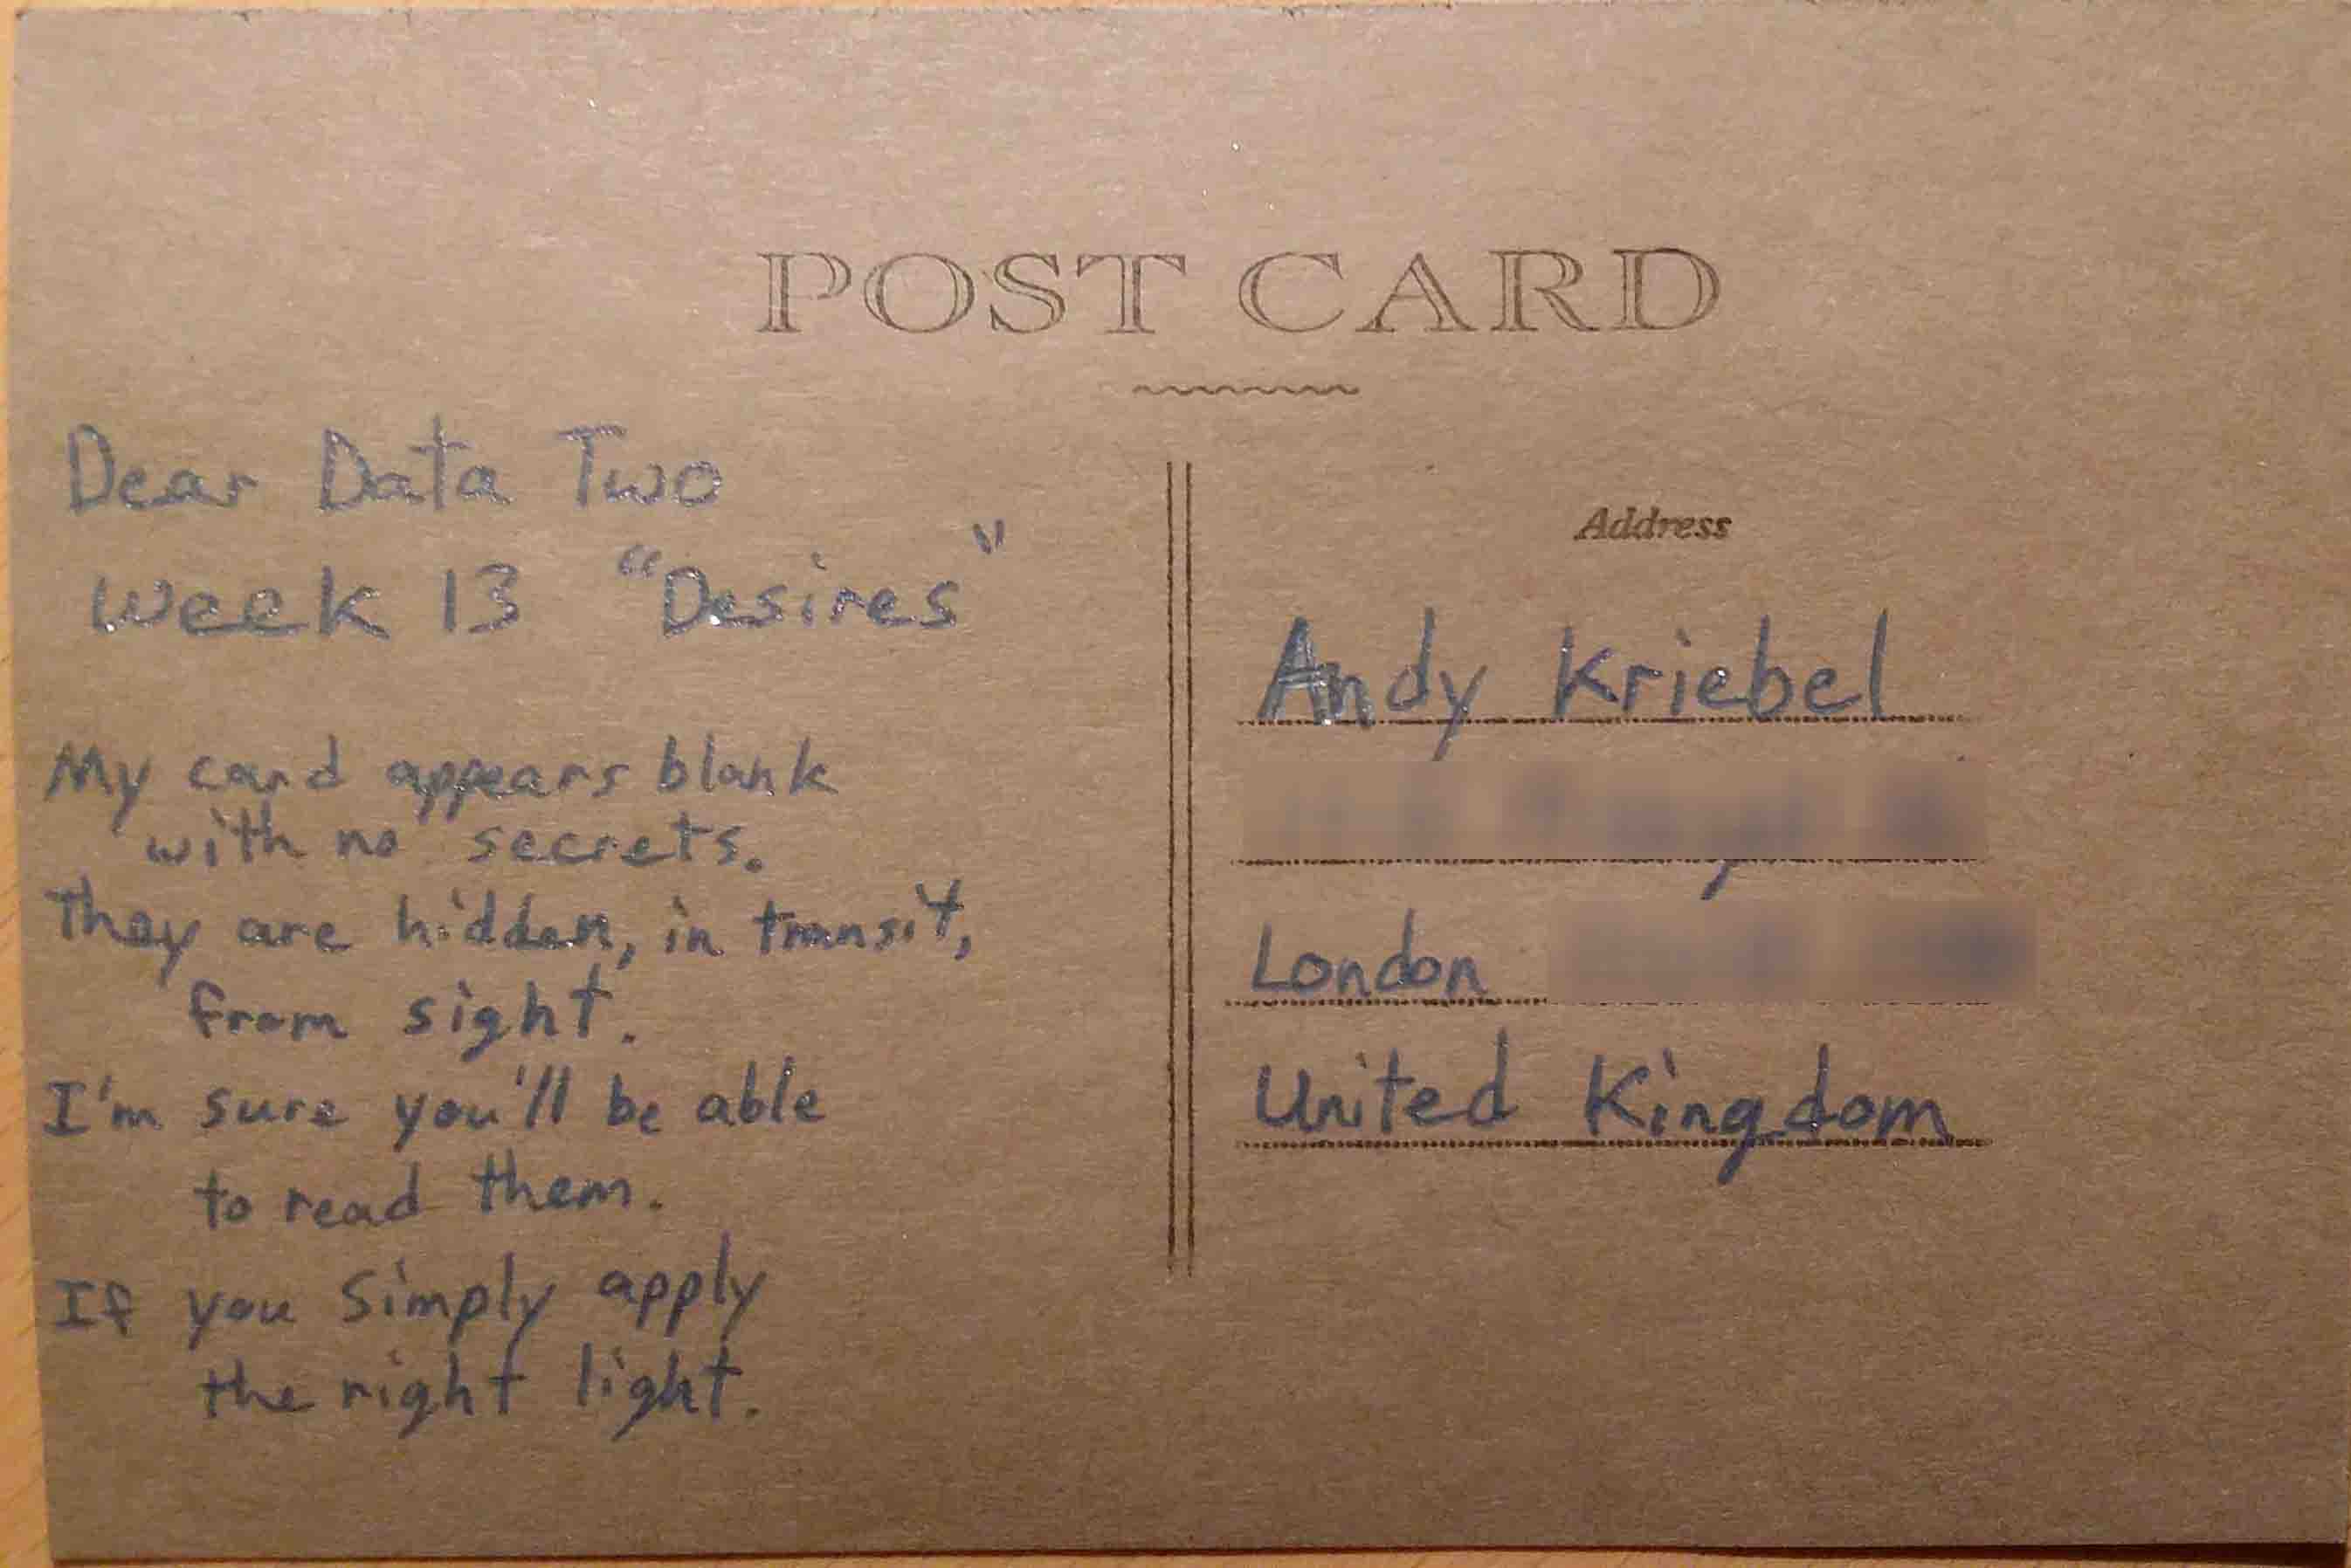 POST CARD
Dear Data Two
Week 13 "Desires"
My card appears blank
with no secrets.
They are hidden, in transit,
from sight.
I'm sure you'll be able
to read them.
If you simply apply
the right light.
Address
Andy Kriebel
London
United Kingdom